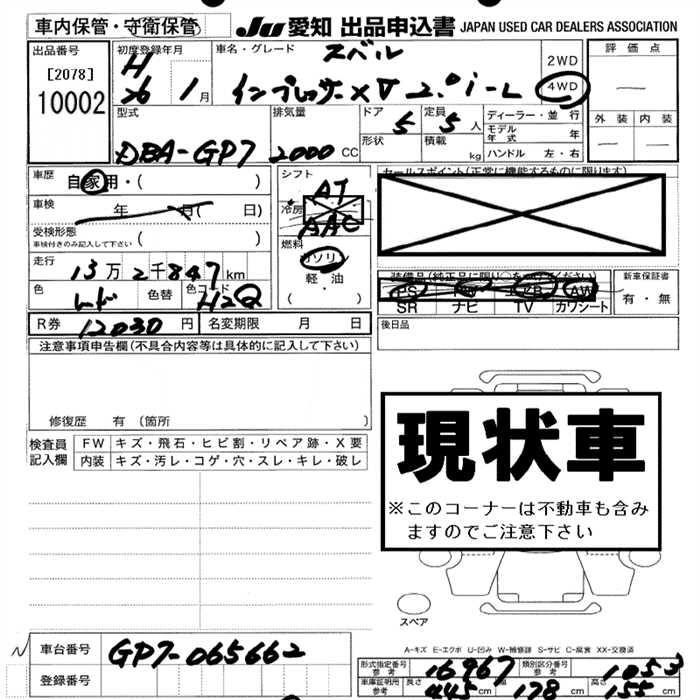 車内保管・守衛保管 JU 愛知 出品申込書 JAPAN USED CAR DEALERS ASSOCIATION
出品番号 初度登録年月 車名・グレード スバル 2WD 評価点
[2078] H 26 1月 インプレッサXV 2.0i-L 4WD ―
10002 型式 排気量 ドア 定員 ディーラー・並行 外装 内装
DBA-GP7 2000CC 5 5人 モデル年式 年 ― ―
形状 積載 kg ハンドル 左・右
車歴 自家用・( ) シフト AT セールスポイント(正常に機能するものに限ります)
車検 年 月( 日) 冷房 AAC
受検形態 ( ) 燃料
車検付きのみ記入して下さい ガソリン
走行 13万2千847km 軽・油 装備品(純正品に限り○をつけてください) 新車保証書
色 レッド 色替 色コード H2Q ( ) PS PW AW 有・無
SR ナビ TV カワシート
R券 12030円 名変期限 月 日 後日品
注意事項申告欄(不具合内容等は具体的に記入して下さい)
修復歴 有 (箇所 )
現状車
※このコーナーは不動車も含みますのでご注意下さい
検査員記入欄 FW キズ・飛石・ヒビ割・リペア跡・X要
内装 キズ・汚レ・コゲ・穴・スレ・キレ・破レ
スペア
A-キズ E-エクボ U-凹み W-補修跡 S-サビ C-腐食 XX-交換済
車台番号 GP7-065662 型式指定番号 参考 16967 類別区分番号 参考 1053
登録番号 車庫証明用 参考 長さ 445cm 幅 178cm 高さ 155cm